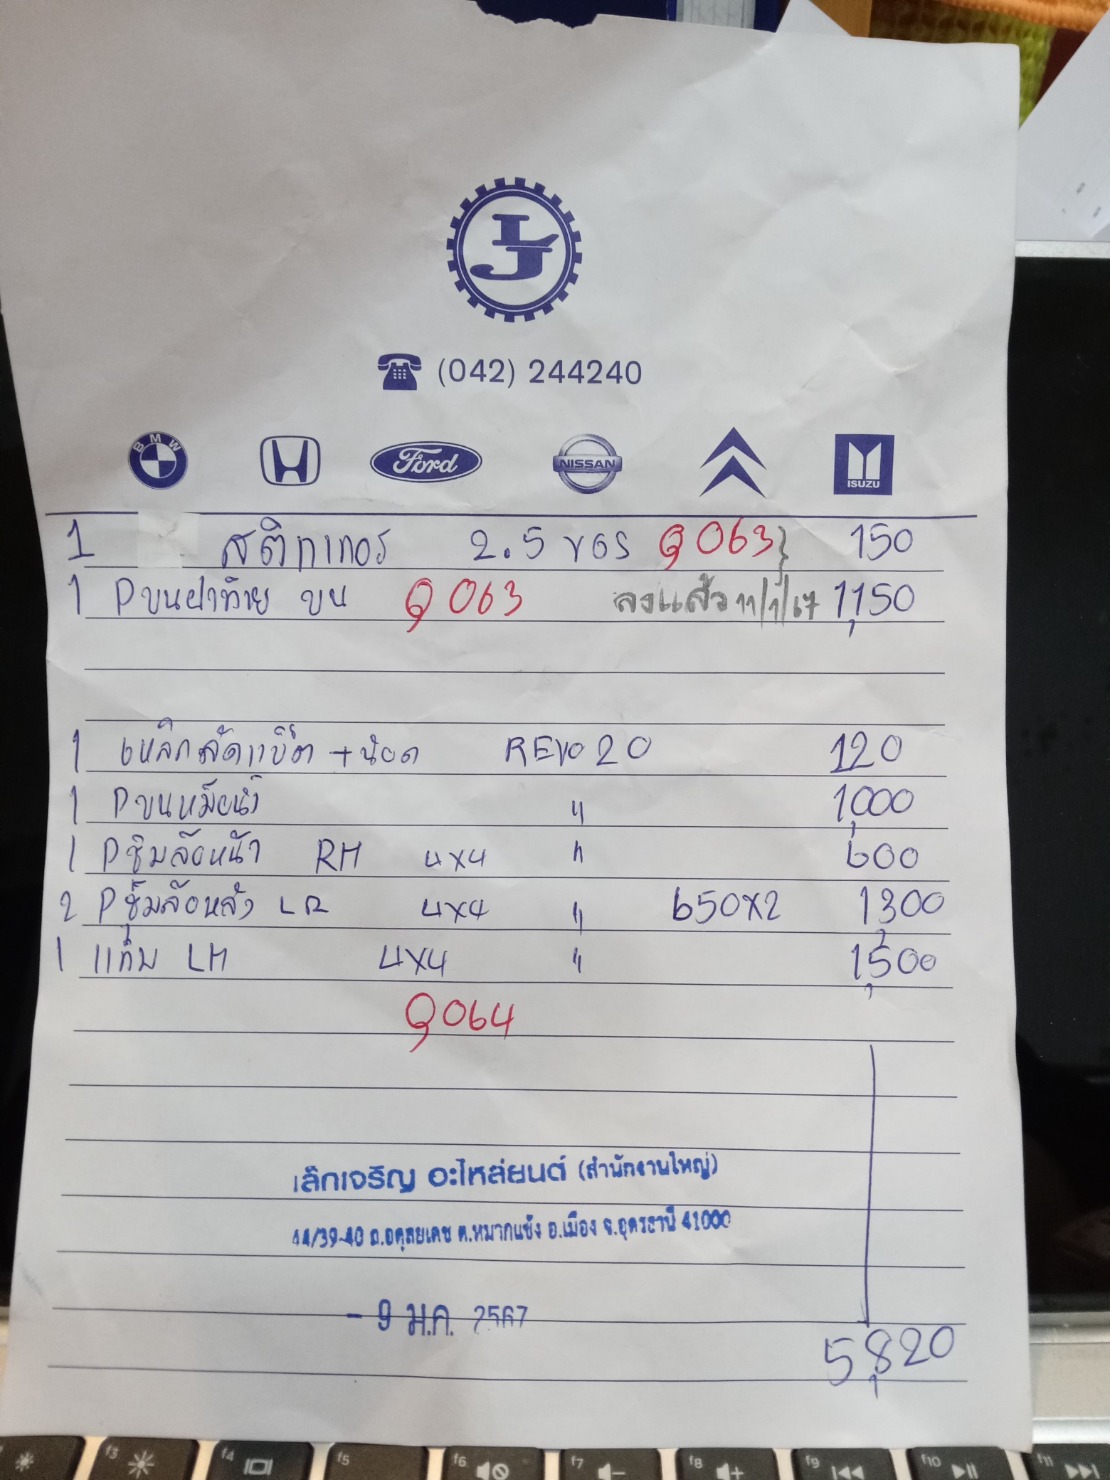 LJ
(042) 244240
BMW Ford NISSAN ISUZU
1 สติกเกอร 2.5 VGS ฉ 063 150
1 Pขนฝาท้าย บน ฉ 063 ลงแล้ว 11/1/67 1,150
1 เหล็กลัดแบ็ต + น้อต REVO 20 120
1 Pขนหม้อน้ำ " 1,000
1 Pซุ้มล้อหน้า RH 4x4 " 600
2 Pซุ้มล้อหลัง LR 4x4 " 650x2 1,300
1 แก้ม LH 4x4 " 1,500
ฉ 064
เล็กเจริญ อะไหล่ยนต์ (สำนักงานใหญ่)
44/39-40 ถ.อดุลยเดช ต.หมากแข้ง อ.เมือง จ.อุดรธานี 41000
- 9 ม.ค. 2567
5,820
f3 f4 f5 f6 f7 f8 f9 f10 f11